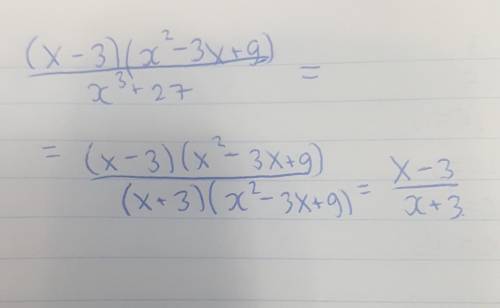 (x-3)(x²-3x+9)/x³+27 =
= (x-3)(x²-3x+9)/(x+3)(x²-3x+9) = x-3/x+3.